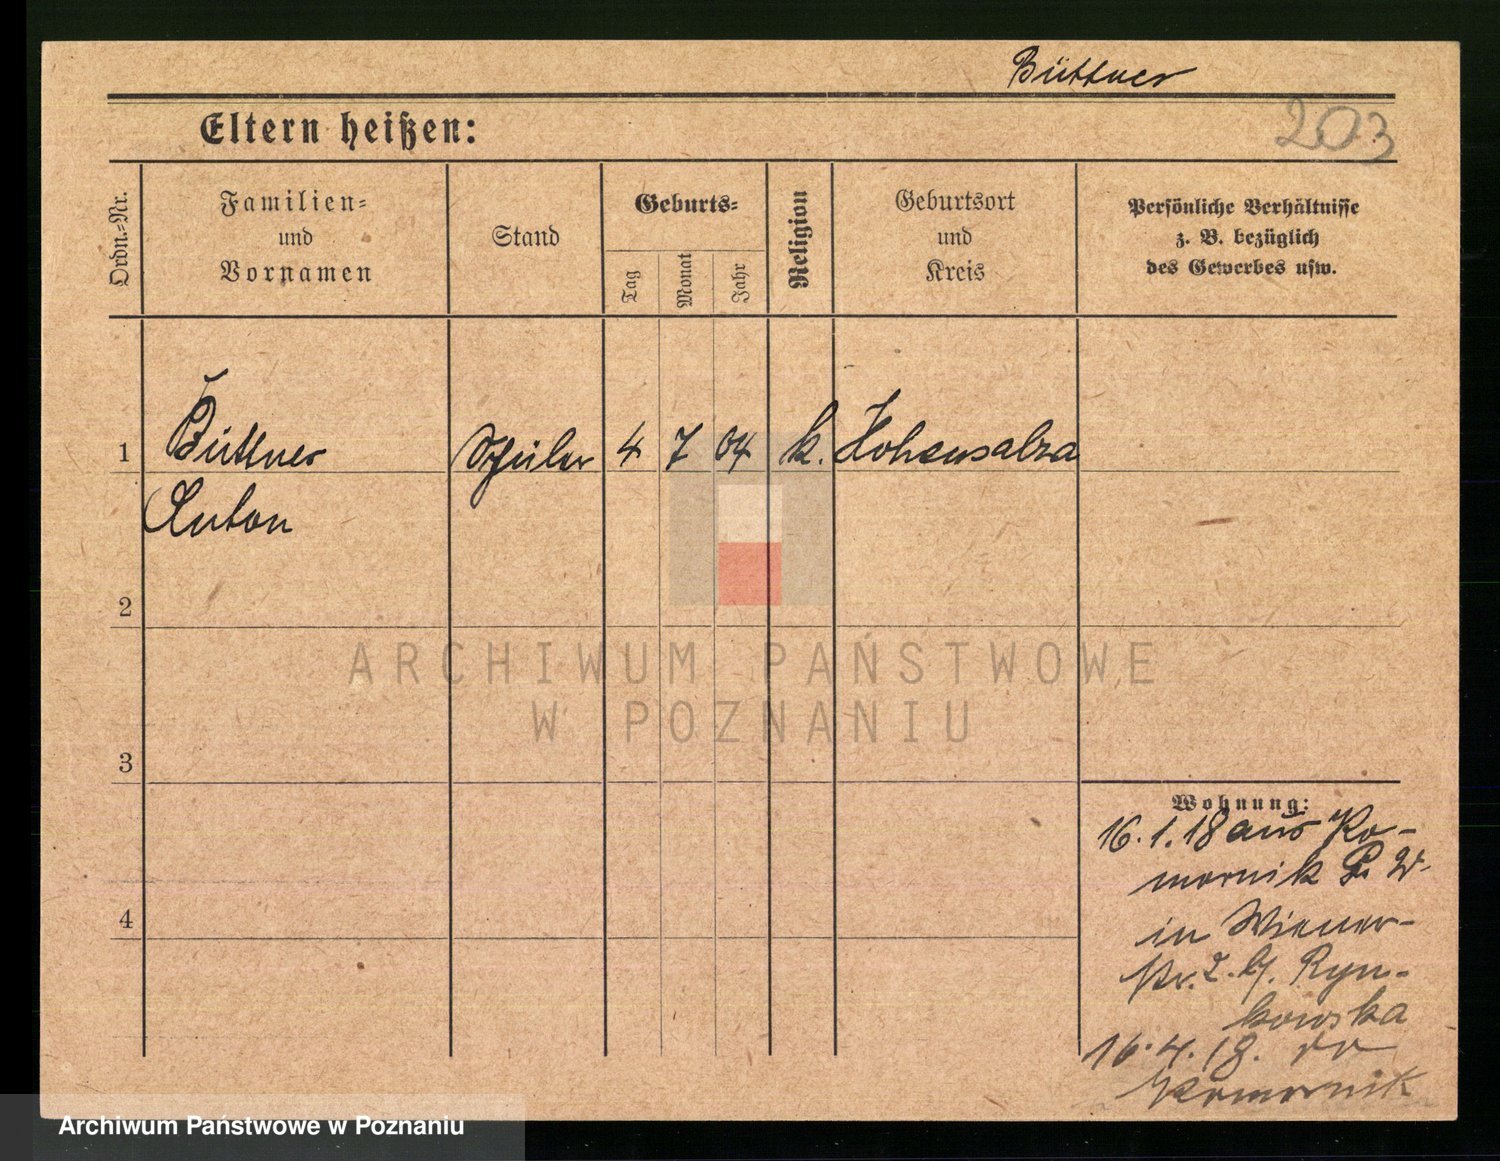 Büttner
203
Eltern heißen:
Ordn.-Nr.
Familien-
und
Vornamen
Stand
Geburts-
Tag
Monat
Jahr
Religion
Geburtsort
und
Kreis
Persönliche Verhältnisse
z. B. bezüglich
des Gewerbes usw.
1 Büttner Schüler 4 7 04 k. Hohensalza
Anton
2
3
4
Wohnung:
16.1.18 aus Ko-
mornik P. W.
in Wiener-
str. 2. b/. Ryn-
kowska
16.4.18.
Komornik
ARCHIWUM PAŃSTWOWE
W POZNANIU
Archiwum Państwowe w Poznaniu